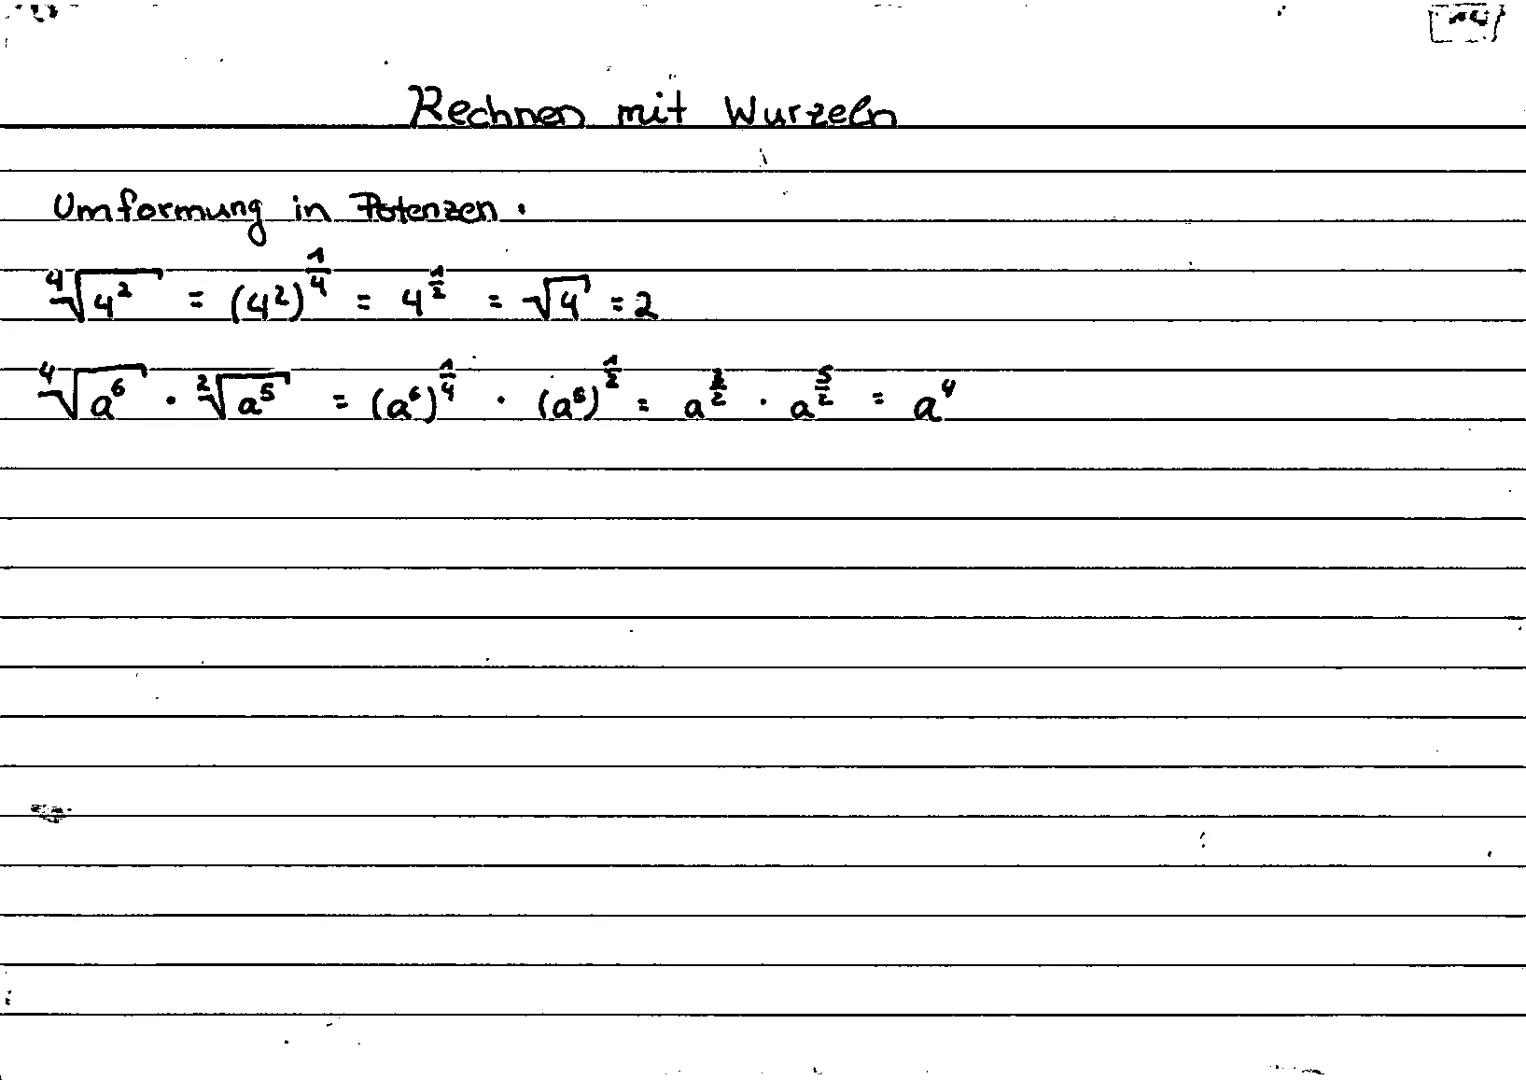 Rechnen mit Wurzeln
Umformung in Potenzen.
⁴√4² = (4²)^(1/4) = 4^(1/2) = √4 = 2
⁴√a⁶ · ²√a⁵ = (a⁶)^(1/4) · (a⁵)^(1/2) = a^(3/2) · a^(5/2) = a⁴